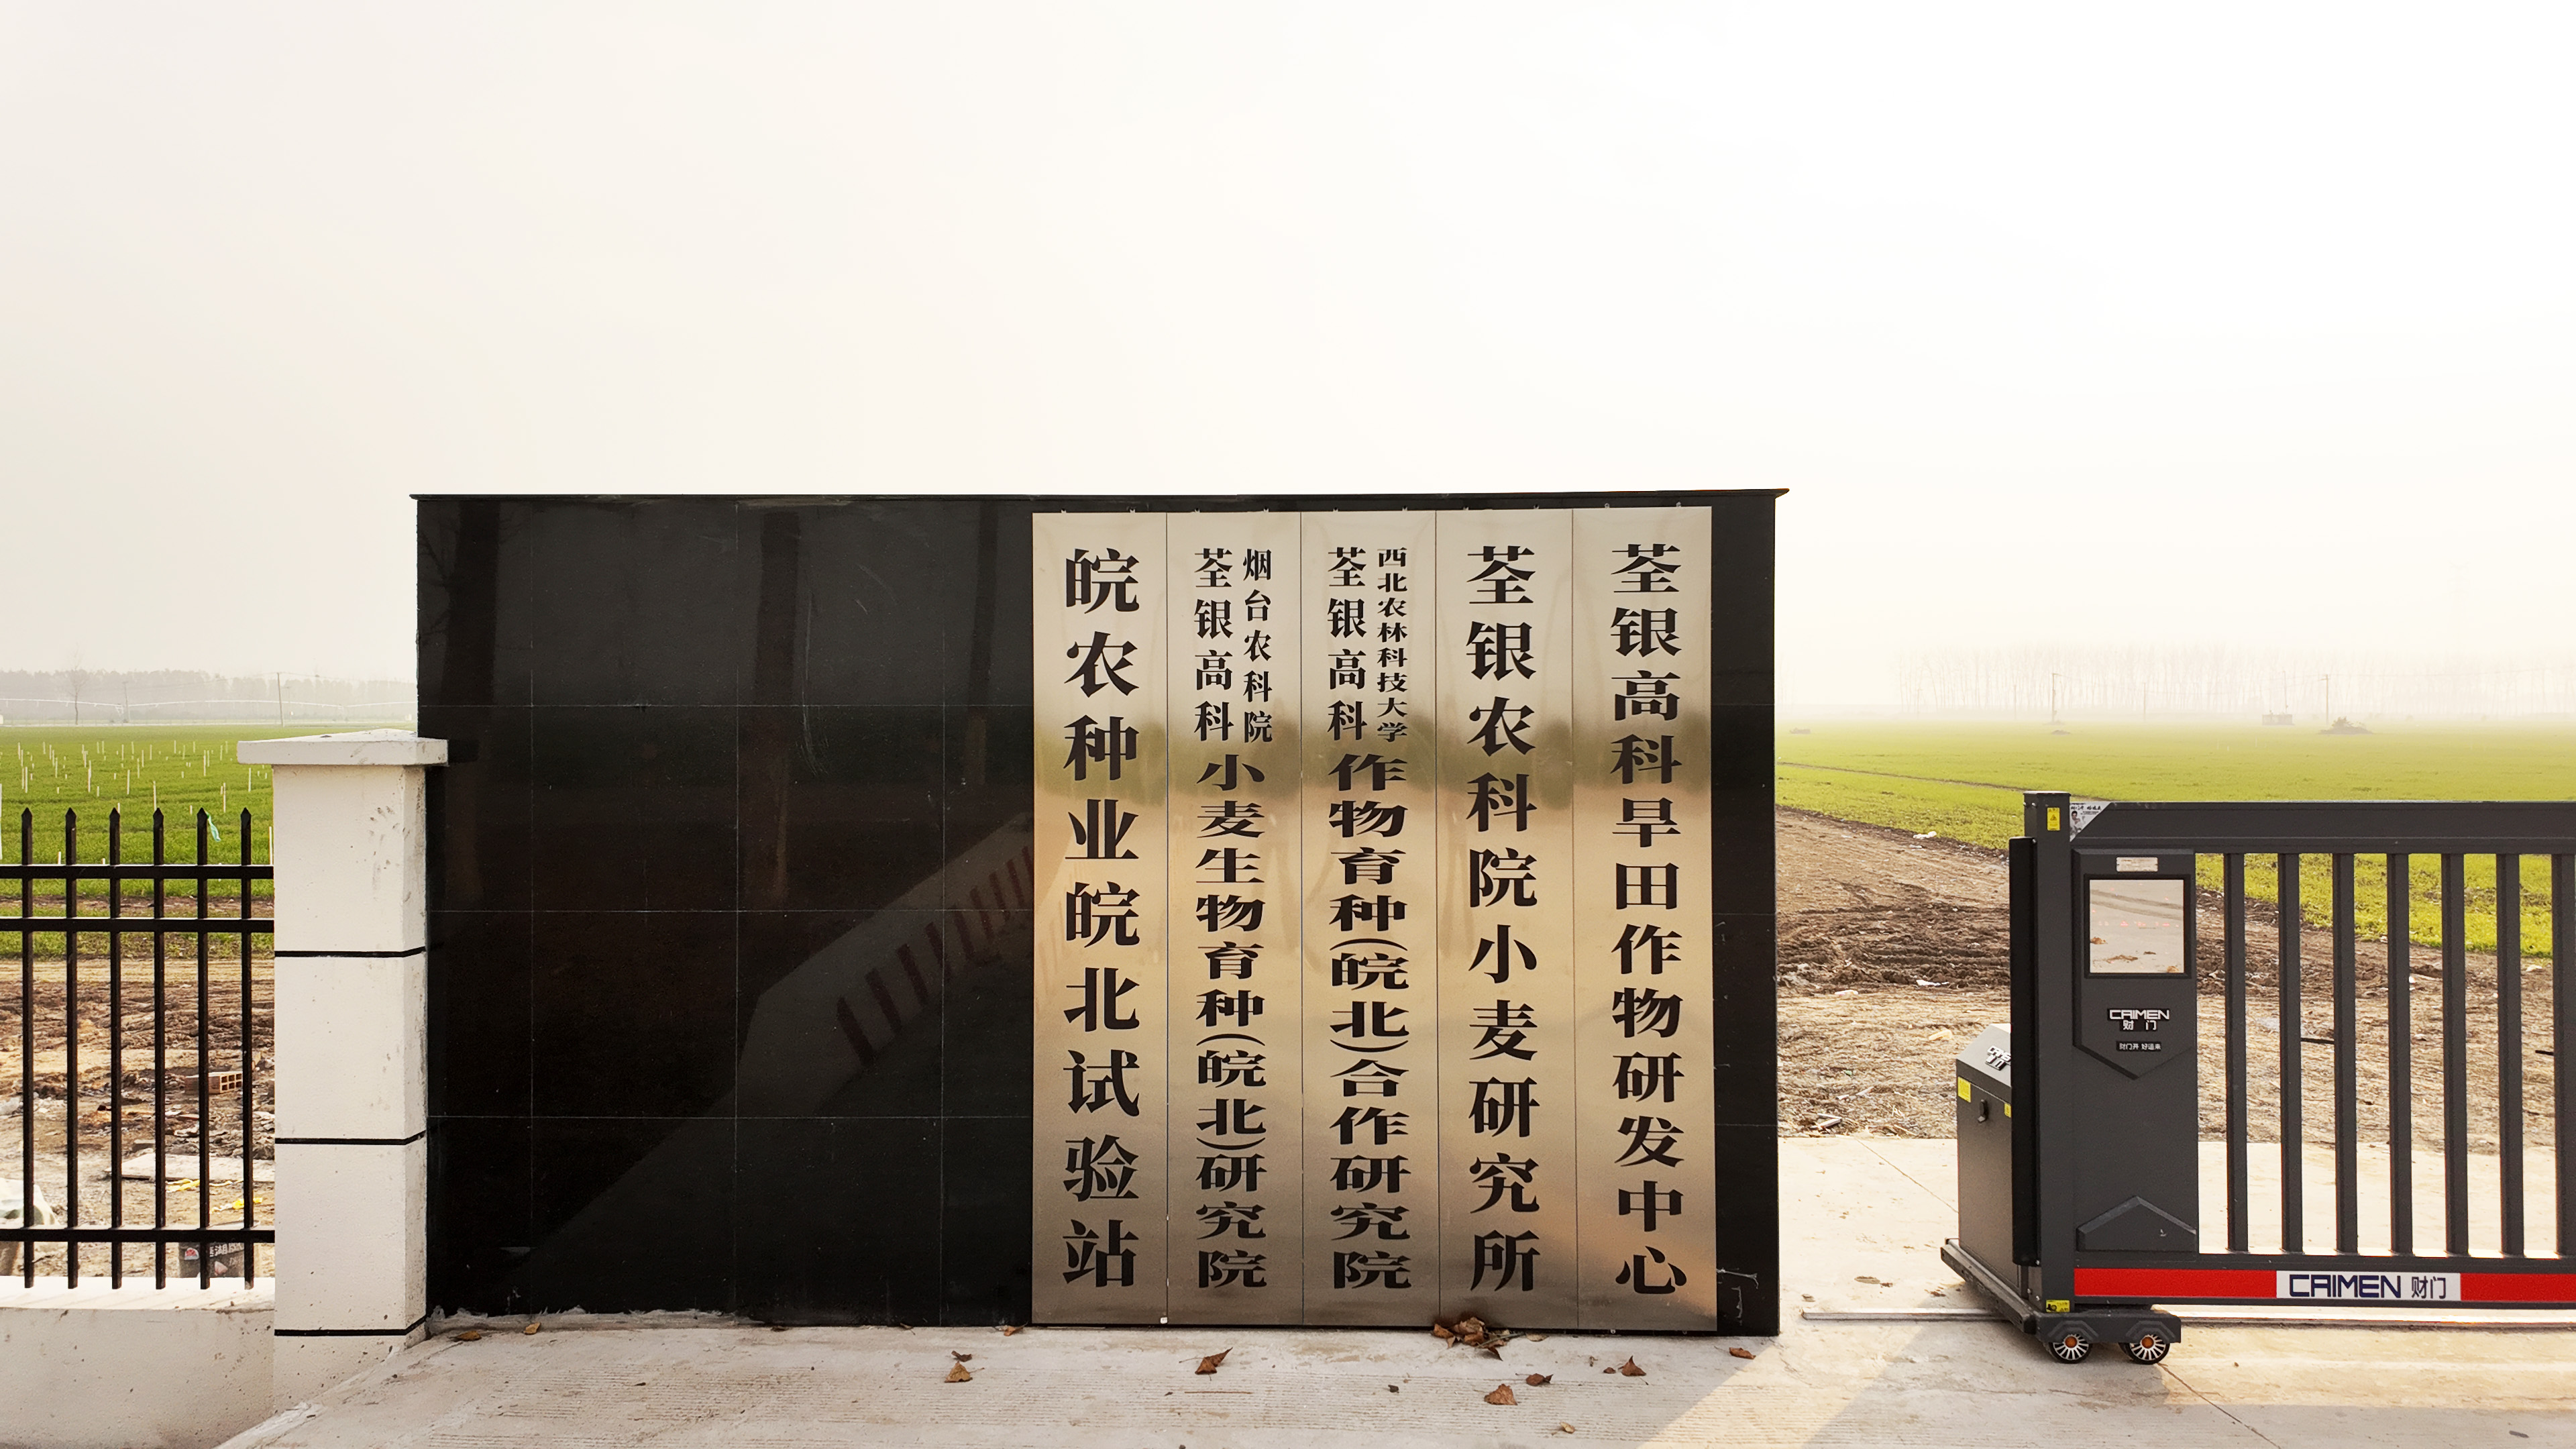 皖农种业皖北试验站
烟台农科院
荃银高科
小麦生物育种(皖北)研究院
西北农林科技大学
荃银高科
作物育种(皖北)合作研究院
荃银农科院小麦研究所
荃银高科旱田作物研发中心
CAIMEN
财门
财门开 好运来
CAIMEN 财门